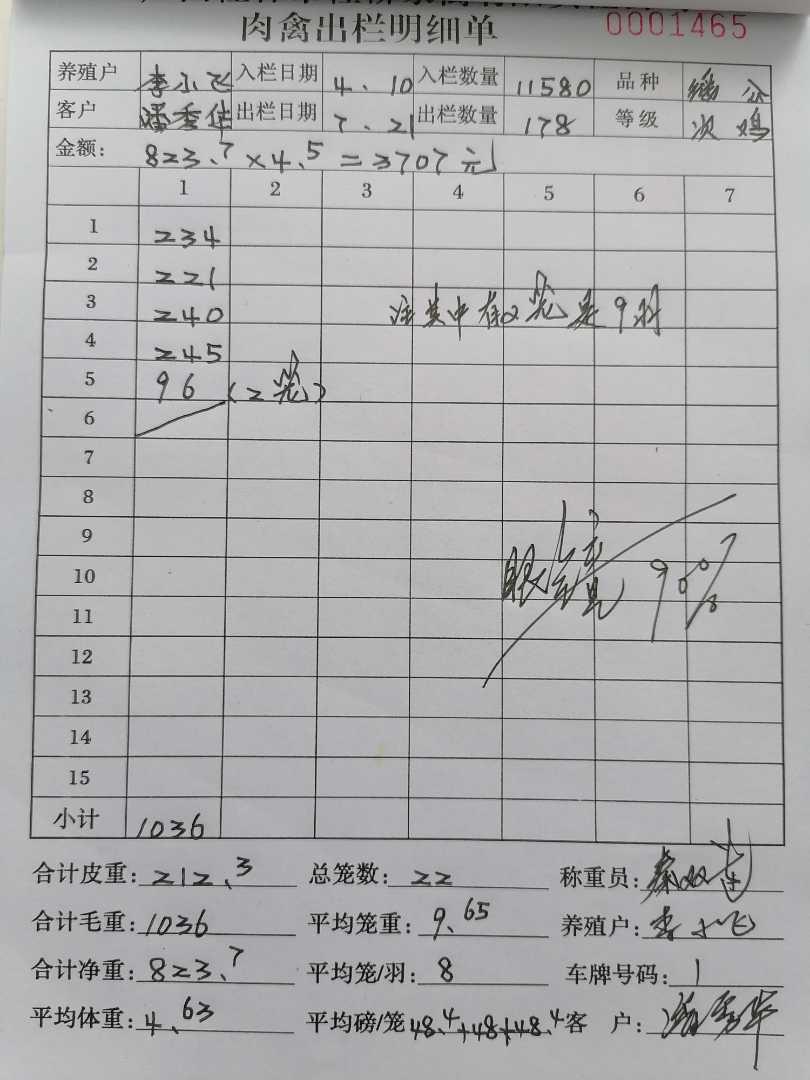 肉禽出栏明细单 0001465
养殖户 李小飞 入栏日期 4.10 入栏数量 11580 品种
客户 出栏日期 7.21 出栏数量 178 等级 次鸡
金额: 823.7×4.5=3707元
1 2 3 4 5 6 7
1 234
2 221
3 240 注其中有2笼是9羽
4 245
5 96 (2笼)
6
7
8
9
10 眼镜 90%
11
12
13
14
15
小计 1036
合计皮重: 212.3 总笼数: 22 称重员:
合计毛重: 1036 平均笼重: 9.65 养殖户: 李小飞
合计净重: 823.7 平均笼/羽: 8 车牌号码: 1
平均体重: 4.63 平均磅/笼 48.4+48+48.4 客 户: